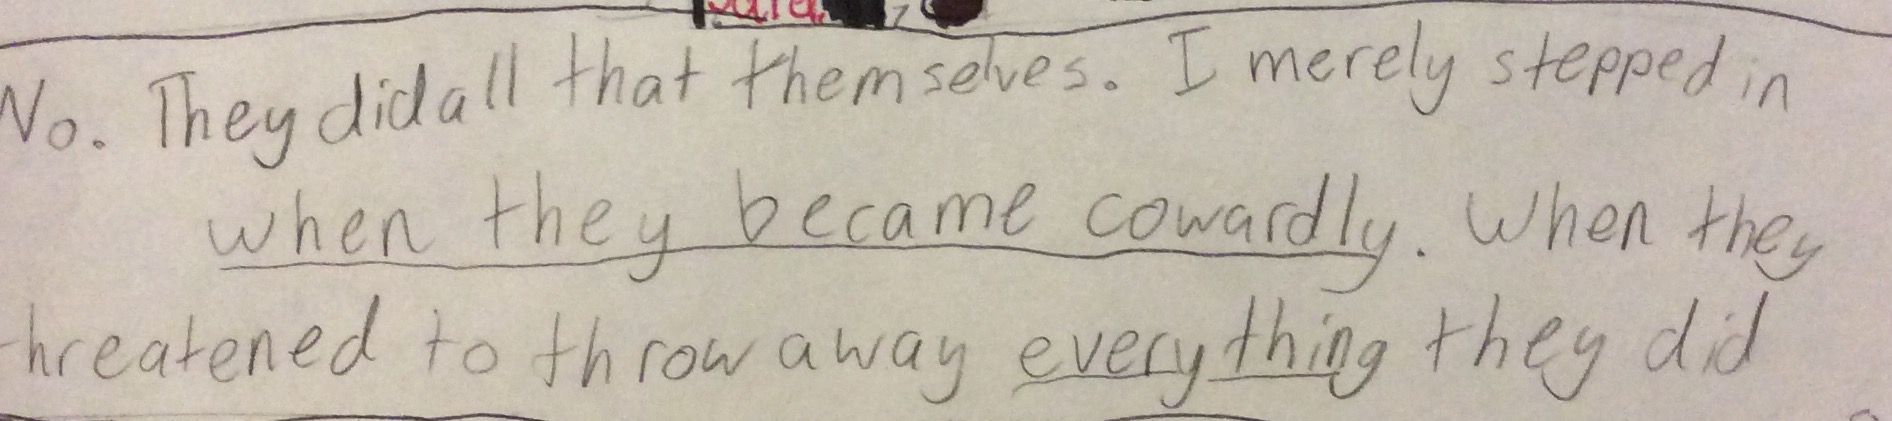 No. They did all that themselves. I merely stepped in
when they became cowardly. When they
threatened to throw away everything they did